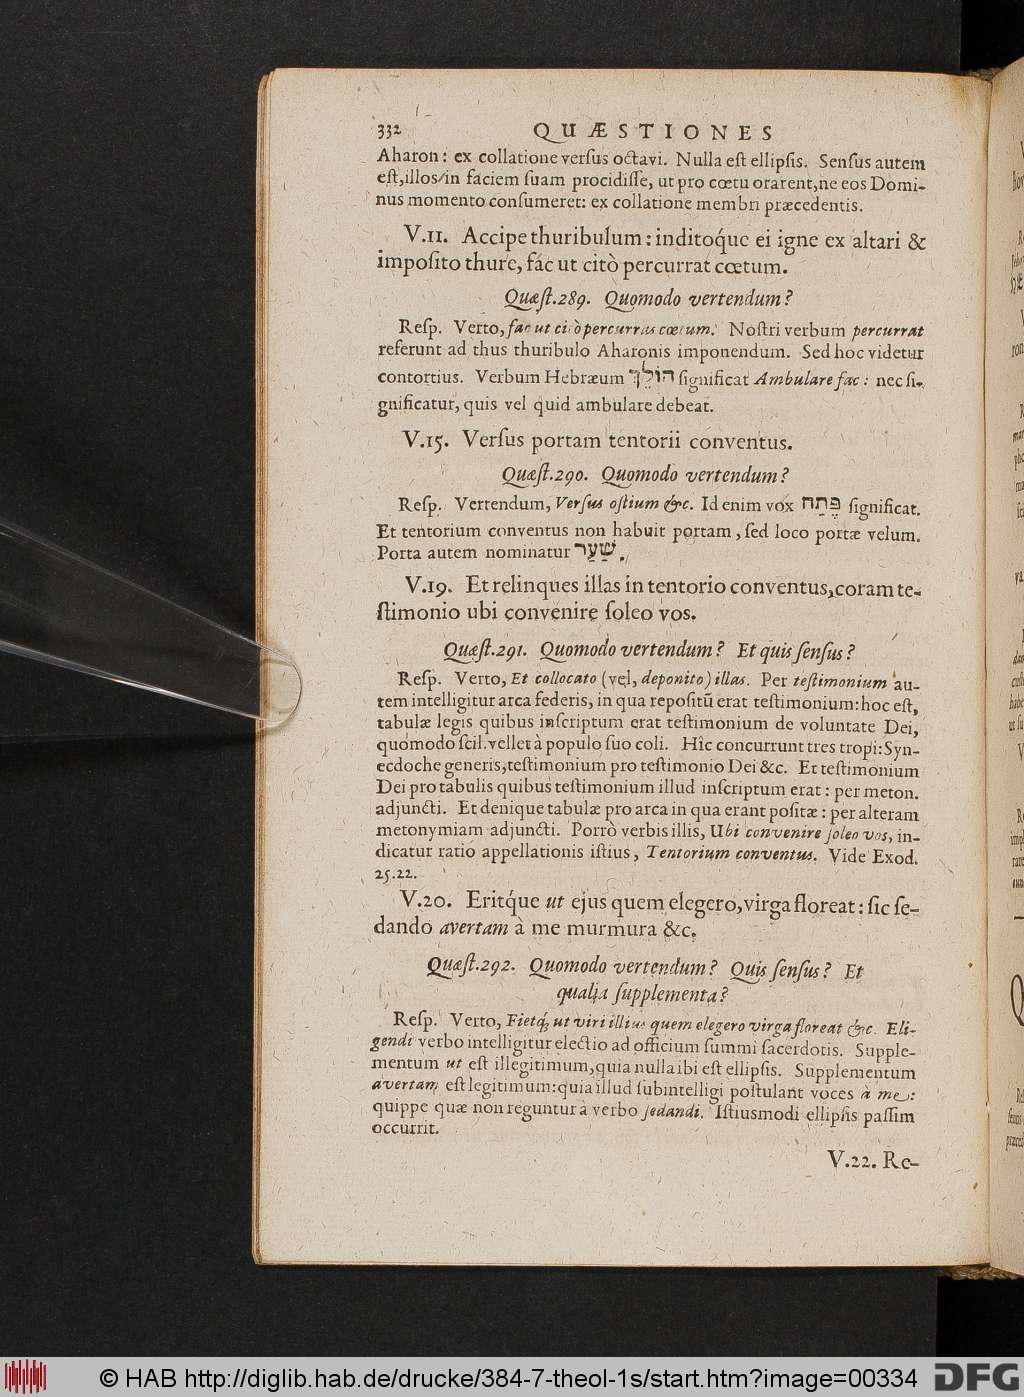 332 QUÆSTIONES
Aharon: ex collatione verſus octavi. Nulla eſt ellipſis. Senſus autem
eſt, illos in faciem ſuam procidiſſe, ut pro cœtu orarent, ne eos Domi-
nus momento conſumeret: ex collatione membri præcedentis.
V.11. Accipe thuribulum: inditoq́ue ei igne ex altari &
impoſito thure, fác ut citò percurrat cœtum.
Quæſt.289. Quomodo vertendum?
Reſp. Verto, fac ut citò percurras cœtum. Noſtri verbum percurrat
referunt ad thus thuribulo Aharonis imponendum. Sed hoc videtur
contortius. Verbum Hebræum הוֹלֵךְ ſignificat Ambulare fac: nec ſi-
gnificatur, quis vel quid ambulare debeat.
V.15. Verſus portam tentorii conventus.
Quæſt.290. Quomodo vertendum?
Reſp. Vertendum, Verſus oſtium &c. Id enim vox פֶּתַח ſignificat.
Et tentorium conventus non habuit portam, ſed loco portæ velum.
Porta autem nominatur שַׁעַר.
V.19. Et relinques illas in tentorio conventus, coram te-
ſtimonio ubi convenire ſoleo vos.
Quæſt.291. Quomodo vertendum? Et quis ſenſus?
Reſp. Verto, Et collocato (vel, deponito) illas. Per teſtimonium au-
tem intelligitur arca federis, in qua repoſitū erat teſtimonium: hoc eſt,
tabulæ legis quibus inſcriptum erat teſtimonium de voluntate Dei,
quomodo ſcil. vellet à populo ſuo coli. Hîc concurrunt tres tropi: Syn-
ecdoche generis, teſtimonium pro teſtimonio Dei &c. Et teſtimonium
Dei pro tabulis quibus teſtimonium illud inſcriptum erat: per meton.
adjuncti. Et denique tabulæ pro arca in qua erant poſitæ: per alteram
metonymiam adjuncti. Porrò verbis illis, Ubi convenire ſoleo vos, in-
dicatur ratio appellationis iſtius, Tentorium conventus. Vide Exod.
25.22.
V.20. Eritq́ue ut ejus quem elegero, virga floreat: ſic ſe-
dando avertam à me murmura &c.
Quæſt.292. Quomodo vertendum? Quis ſenſus? Et
qualia ſupplementa?
Reſp. Verto, Fietq́; ut viri illius quem elegero virga floreat &c. Eli-
gendi verbo intelligitur electio ad officium ſummi ſacerdotis. Supple-
mentum ut eſt illegitimum, quia nulla ibi eſt ellipſis. Supplementum
avertam eſt legitimum: quia illud ſubintelligi poſtulant voces à me:
quippe quæ non reguntur à verbo ſedandi. Iſtiusmodi ellipſis paſſim
occurrit.
V.22. Re-
© HAB http://diglib.hab.de/drucke/384-7-theol-1s/start.htm?image=00334 DFG